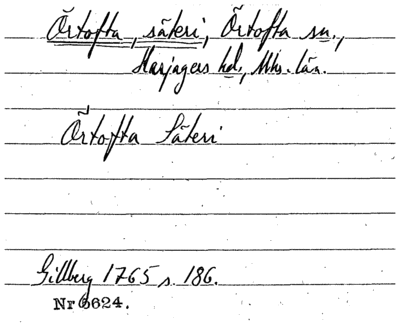 Örtofta, säteri, Örtofta sn.,
Harjagers hd., Mhs. län.
Örtofta Säteri
Gillberg 1765 s. 186.
Nr 6624.